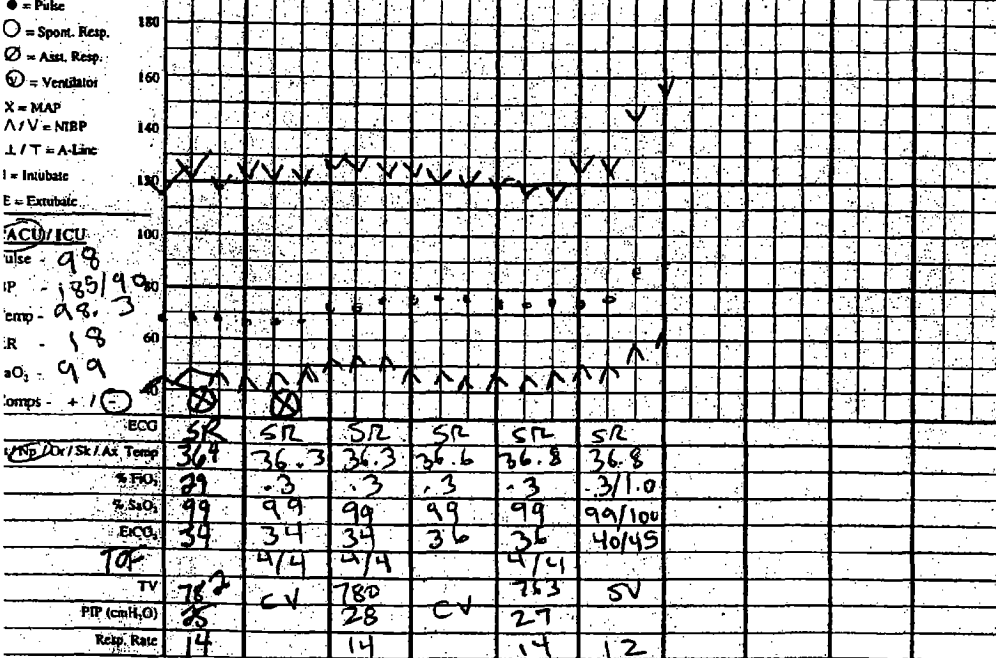 ● = Pulse
○ = Spont. Resp.
Ø = Asst. Resp.
Ⓥ = Ventilator
X = MAP
Λ / V = NIBP
⊥ / T = A-Line
I = Intubate
E = Extubate
180
160
140
120
100
80
60
40
ACU / ICU
ulse - 98
P - 185/90
emp - 98.3
R - 18
aO₂ - 99
omps - + / -
ECG SR SR SR SR SR SR
/ Np / Or / Sk / Ax Temp 36.4 36.3 36.3 36.6 36.8 36.8
% FiO₂ .3 .3 .3 .3 .3/1.0
% SaO₂ 99 99 99 99 99 99/100
EtCO₂ 34 34 34 36 36 40/45
TOF 4/4 4/4 4/4
TV 782 CV 780 CV 763 SV
PIP (cmH₂O) 25 28 27
Resp. Rate 14 14 14 12